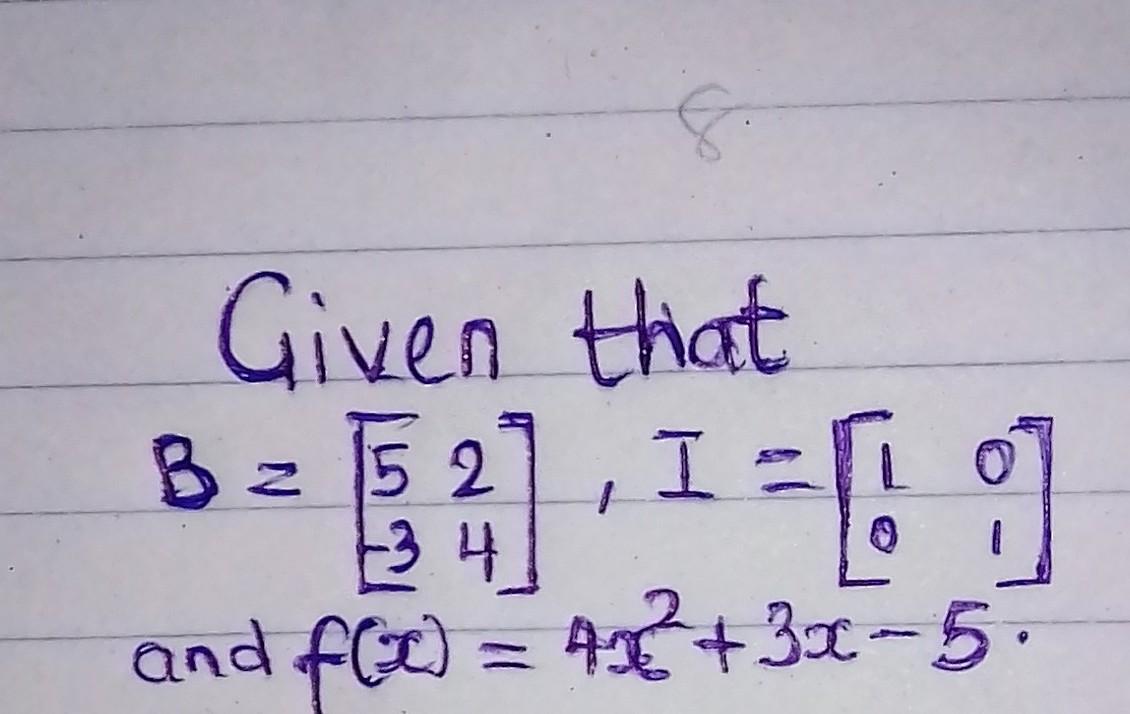 8
Given that
B = [5 2
-3 4], I = [1 0
0 1]
and f(x) = 4x² + 3x - 5.